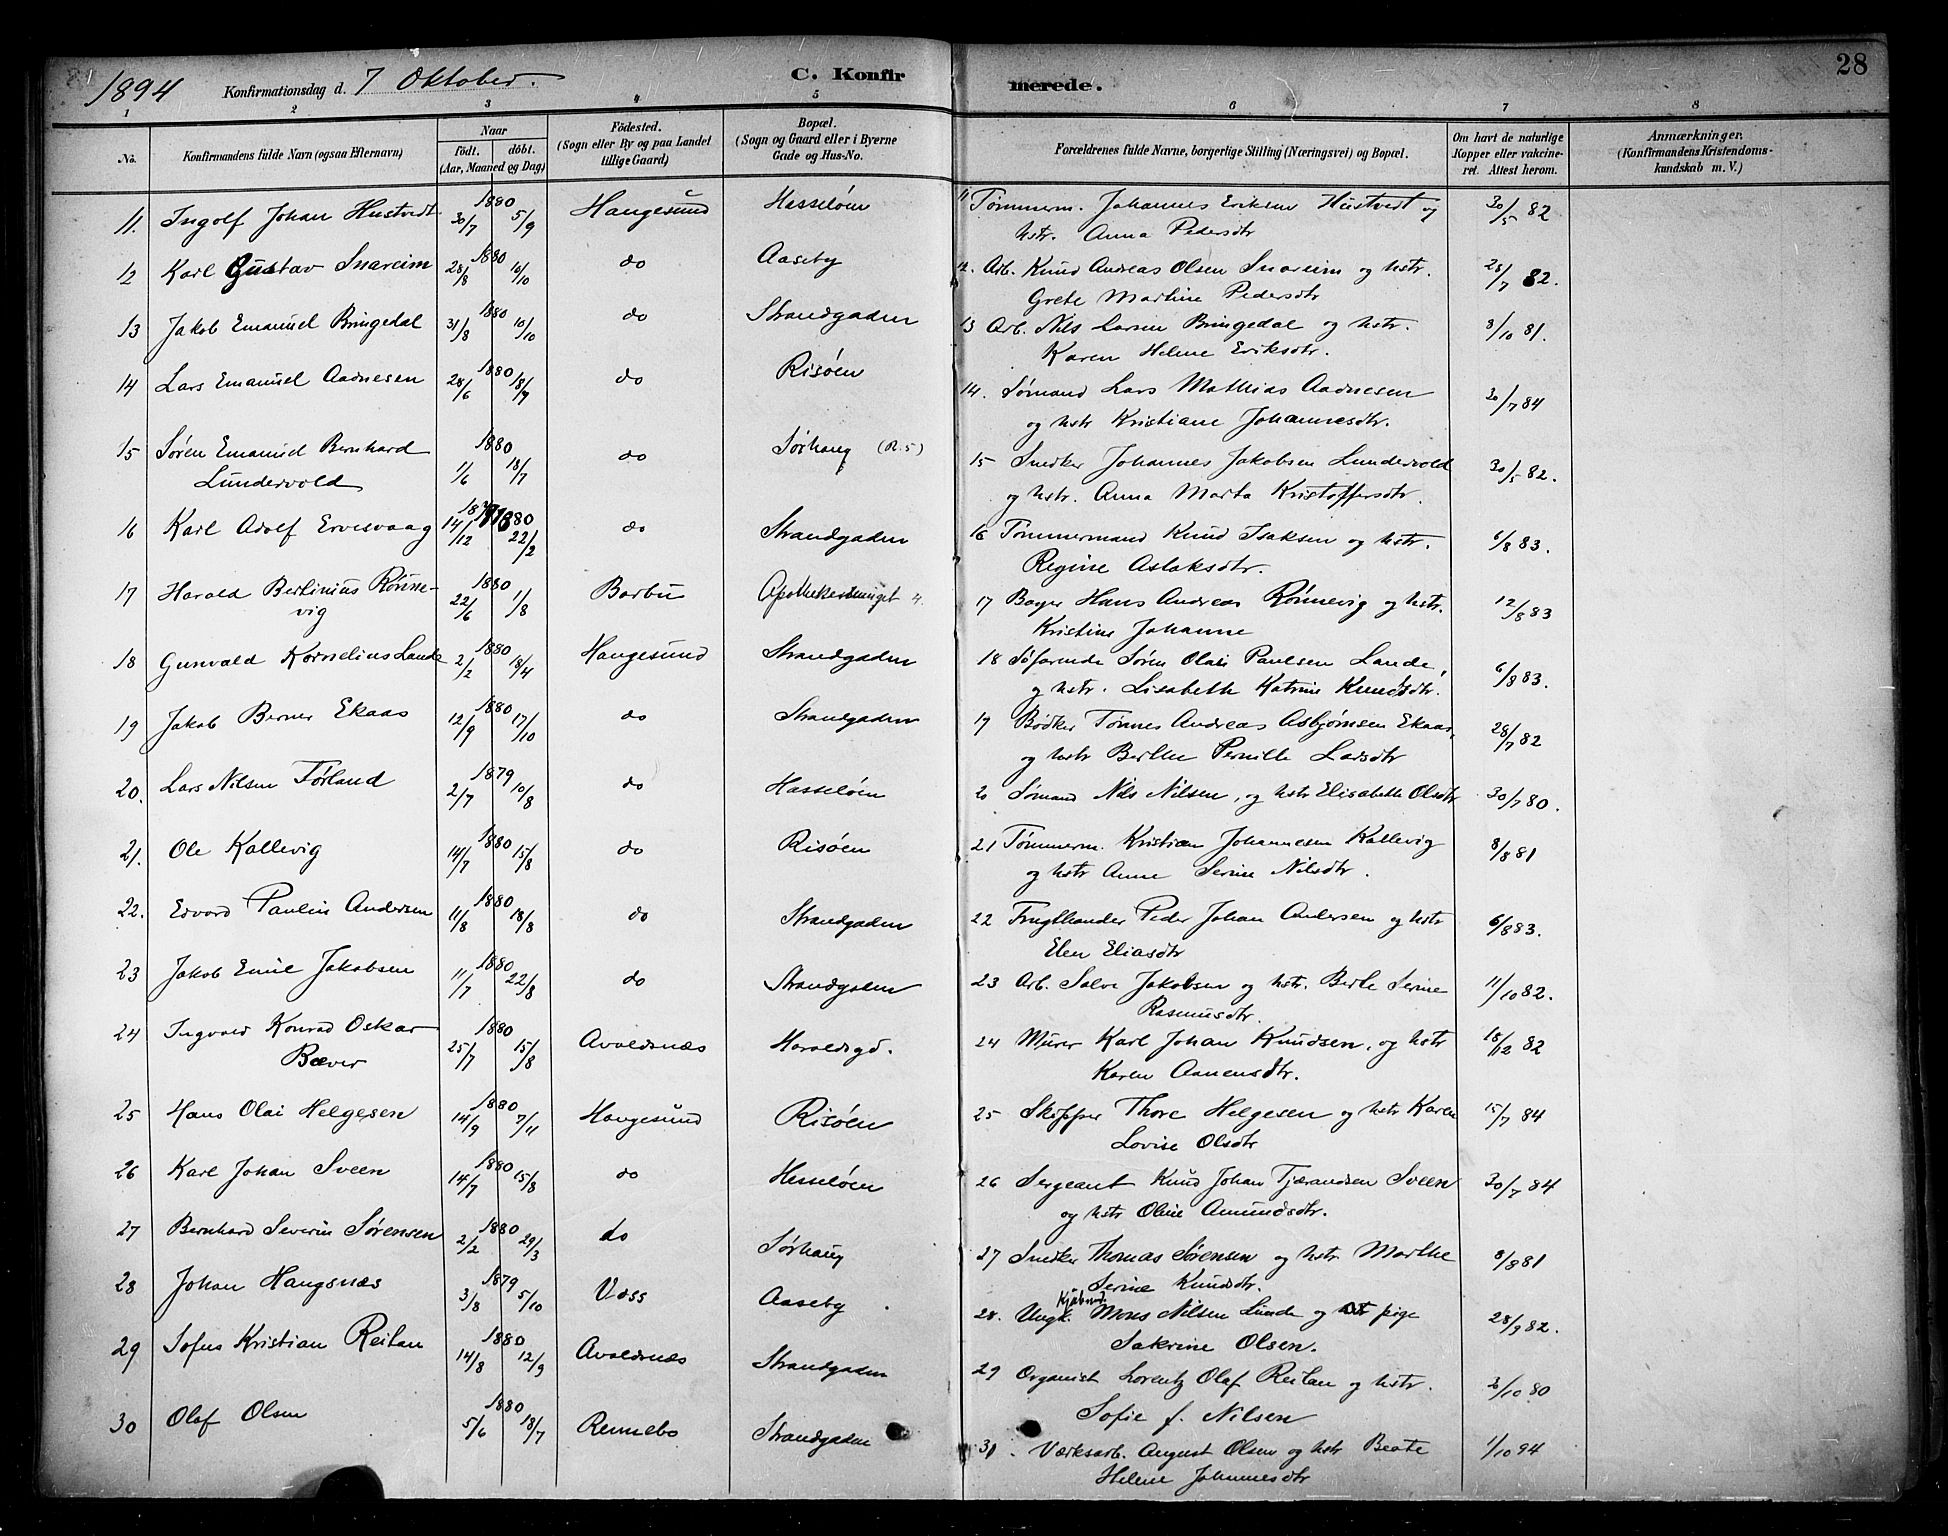 1894 Konfirmationsdag d. 7 Oktober. C. Konfirmerede. 28
1 2 3 4 5 6 7 8
No. Konfirmandens fulde Navn (ogsaa Efternavn) Naar födt. döbt. (Aar, Maaned og Dag) Födested. (Sogn eller By og paa Landet tillige Gaard) Bopæl. (Sogn og Gaard eller i Byerne Gade og Hus-No. Forældrenes fulde Navne, borgerlige Stilling (Næringsvei) og Bopæl. Om havt de naturlige Kopper eller vakcineret. Attest herom. Anmærkninger. (Konfirmandens Kristendomskundskab m. V.)
11. Ingolf Johan Hustvedt 1880 30/7 5/9 Haugesund Hasseløen 11 Tømmerm. Johannes Eriksen Hustvedt og 30/5 82
hstr. Anna Pedersdtr
12 Karl Gustav Snareim 1880 28/8 10/10 do Aaseby 12. Arb. Knud Andreas Olsen Snareim og hstr. 28/7 82.
Grete Martine Pedersdtr
13 Jakob Emanuel Bringedal 1880 31/8 10/10 do Strandgaden 13 Arb. Nils Larsen Bringedal og hstr. 8/10 81.
Karen Helene Eriksdtr.
14 Lars Emanuel Aadnesen 1880 28/6 18/7 do Risöen 14. Sømand Lars Mathias Aadnesen 30/7 84
og hstr Kristiane Johannesdtr.
15 Søren Emanuel Bernhard 1880 1/6 18/7 do Sørhaug (R. 5) 15 Snedker Johannes Jakobsen Lundervold 30/5 82.
Lundervold og hstr. Anna Marta Kristoffersdtr.
16 Karl Adolf Ervesvaag 14/12 80 22/2 do Strandgaden 16 Tømmermand Knud Isaksen og hstr. 6/8 83.
Regine Aslaksdtr.
17 Harald Bertinius Rønne- 1880 22/6 1/8 Barbu Apothekersmuget 4. 17 Bager Hans Andreas Rønnevig og hstr. 12/8 83
vig Kristine Johanne
18 Gunvald Kornelius Lande 1880 2/2 18/4 Haugesund Strandgaden 18 Søfarende Søren Olai Paulsen Lande, 6/8 83.
og hstr. Lisabeth Katrine Knudsdtr.
19 Jakob Berner Ekaas 1880 12/9 17/10 do Strandgaden 19 Bødker Tønnes Andreas Asbjørnsen Ekaas, 28/7 82
og hstr Berthe Pernille Larsdtr
20. Lars Nilsen Førland 1879 2/7 10/8 do Hasseløen 20 Sømand Nils Nilsen, og hstr Elisabeth Olsdtr 30/7 80.
21. Ole Kallevig 1880 14/7 15/8 do Risöen 21 Tømmerm. Kristian Johannesen Kallevig 8/8 81
og hstr Anne Serine Nilsdtr.
22. Edvard Paulin Andersen 1880 11/8 18/8 do Strandgaden 22 Frugthandler Peder Johan Andersen og hstr 6/8 83.
Elen Eliasdtr
23 Jakob Emil Jakobsen 1880 11/7 22/8 do Strandgaden 23 Arb. Salve Jakobsen og hstr. Berte Serine 11/10 82.
Rasmusdtr.
24 Ingvald Konrad Oskar 1880 25/7 15/8 Avaldsnæs Haraldsgd. 24 Murer Karl Johan Knudsen, og hstr 18/12 82
Bæver Karen Aanensdtr.
25 Hans Olai Helgesen 1880 14/9 7/11 Haugesund Risöen 25 Skipper Thore Helgesen og hstr Karen 15/7 84
Lovise Olsdtr
26 Karl Johan Sveen 1880 14/7 15/8 do Hasseløen 26 Sergeant Knud Johan Tjærandsen Sveen 30/7 84
og hstr Oline Amundsdtr.
27 Bernhard Severin Sørensen 1880 2/2 29/3 do Sørhaug 27 Snedker Thomas Sørensen og hstr Marthe 8/8 81
Serine Knudsdtr.
28 Johan Haugsnæs 1879 3/8 5/10 Voss Aaseby 28. Ungk. Kjøbmd. Mons Nilsen Lunde og pige 28/9 82.
Sakrine Olsen.
29 Sofus Kristian Reitan 1880 14/8 12/9 Avaldsnæs Strandgaden 29 Organist Lorentz Olaf Reitan og hstr. 2/10 80
Sofie f. Nilsen
30 Olaf Olsen 1880 5/6 18/7 Rennebo Strandgaden 30. Værksarb. August Olsen og hstr Beate 1/10 94
Helene Johannesdtr